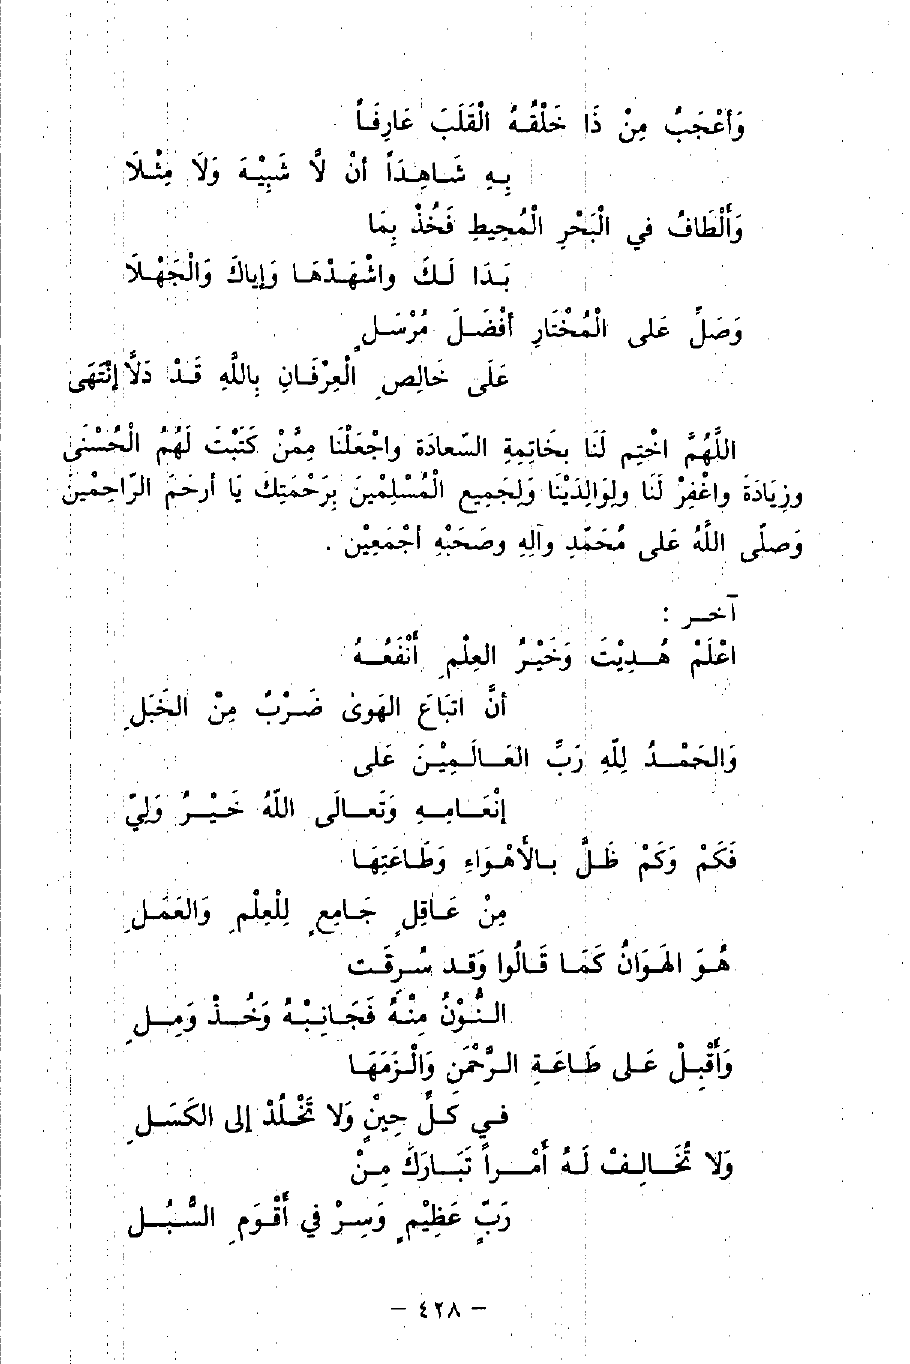 وَأَعْجَبُ مِنْ ذَا خَلْقُهُ الْقَلْبَ عَارِفَاً
بِهِ شَاهِدَاً أنْ لَّا شَبِيْهَ وَلَا مِثْلَا
وَأَلْطَافُ في الْبَحْرِ الْمُحِيطِ فَخُذْ بِمَا
بَدَا لَكَ واشْهَدْهَا وَإِياكَ وَالْجَهْلَا
وَصَلِّ عَلى الْمُخْتَارِ أفْضَلَ مُرْسَلٍ
عَلَى خَالِصِ الْعِرْفَانِ بِاللَّهِ قَدْ دَلَّا إنْتَهَى
اللَّهُمَّ اخْتِم لَنَا بخَاتِمِةِ السَّعادَة واجْعَلْنَا مِمَّنْ كَتَبْتَ لَهُمُ الْحُسْنَى
وزِيَادَة واغْفِرْ لَنَا ولِوَالِدَيْنَا وَلِجَمِيعِ الْمُسْلِمْينَ بِرَحْمَتِكَ يَا أرحَمَ الرّاحِمْينَ
وَصلّى اللَّهُ عَلى مُحَمَّدٍ وآلِهِ وصَحْبِهِ أجْمَعِيْنَ .
آخر :
اعْلَمْ هُدِيْتَ وَخَيْرُ العِلْمِ أَنْفَعُهُ
أنَّ اتبَاعَ الهَوىٰ ضَرْبٌ مِنْ الخَبَلِ
وَالحَمْدُ لِلّهِ رَبِّ العَالَمِيْنَ عَلى
إِنْعَامِهِ وَتَعالَى اللَّهُ خَيْرُ وَلِيّ
فَكَمْ وَكَمْ ظَلَّ بِالأَهْوَاءِ وَطَاعَتِهَا
مِنْ عَاقِلٍ جَامِعٍ لِلْعِلْمِ وَالعَمَلِ
هُوَ الهَوَانُ كَمَا قَالُوا وَقد سُرِقَت
النُّوْنُ مِنْهُ فَجَانِبْهُ وَخُذْ وَمِلِ
وَأَقْبِلْ عَلى طَاعَةِ الرَّحْمَنِ وَالْزَمَهَا
في كلِّ حِيْنٍ وَلا تَخْلُدْ إلى الكَسَلِ
وَلا تُخَالِفْ لَهُ أَمْراً تَبَارَكَ مِنْ
رَبٍّ عَظِيْمٍ وَسِرْ في أَقْوَمِ السُّبُلِ
– ٤٢٨ –